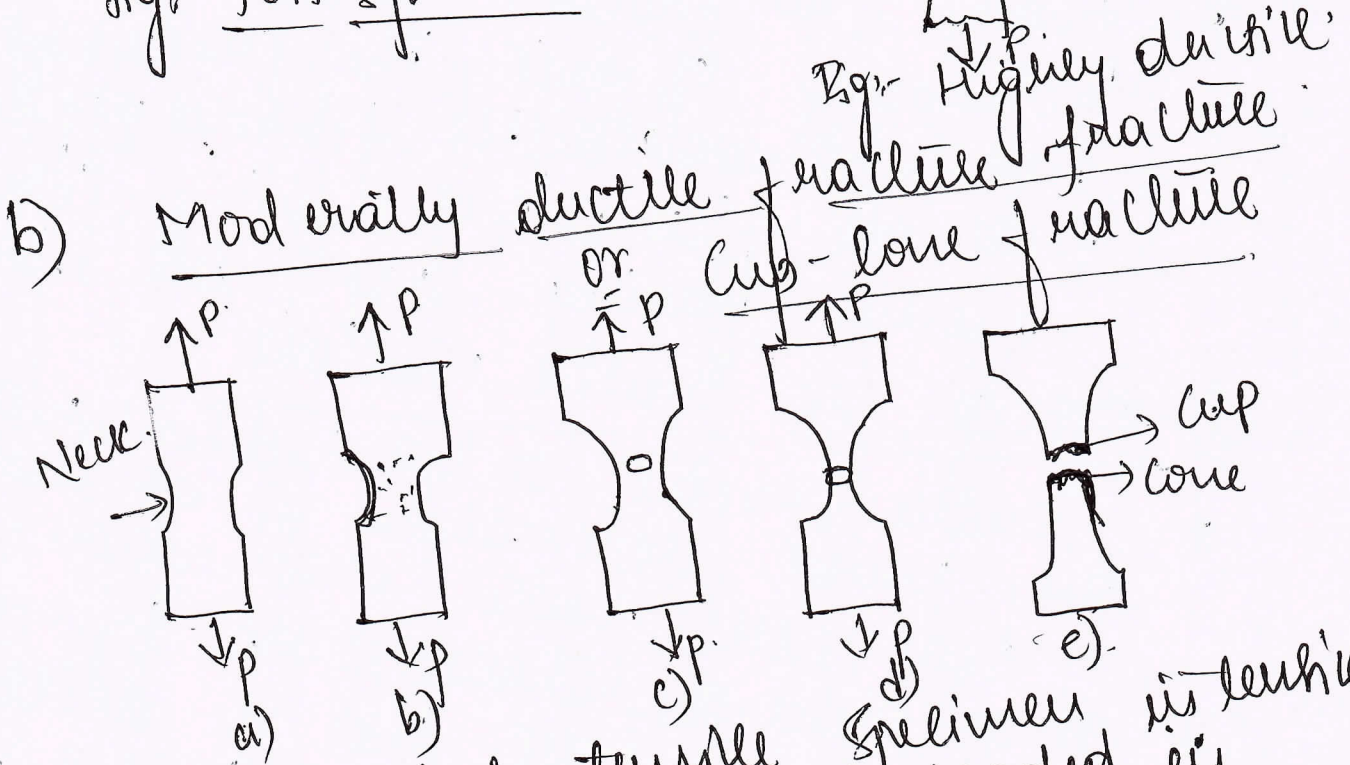 P
Eg:- Highly ductile
fracture
b) Moderally ductile fracture
or Cup-Cone fracture
P P P P
Neck
Cup
Cone
P P P P
a) b) c) d) e).
tensile specimen is